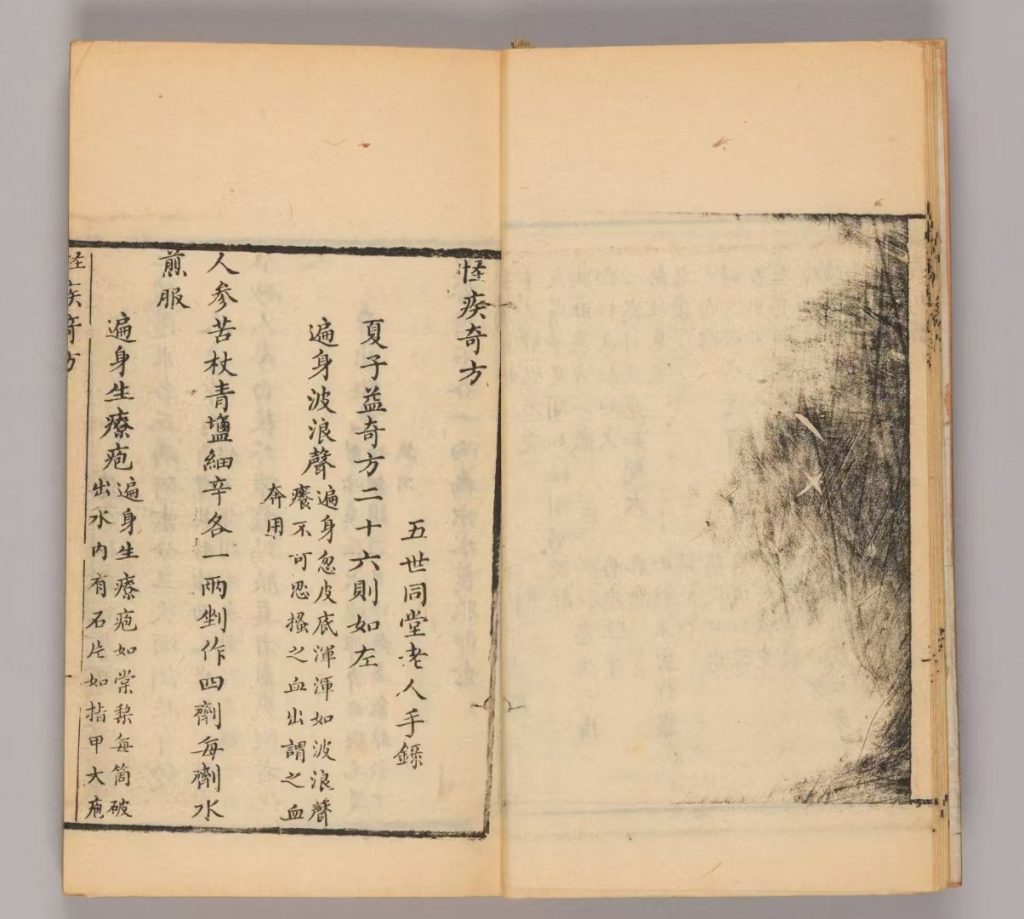 怪疾奇方
五世同堂老人手錄
夏子益奇方二十六則如左
遍身波浪聲
遍身忽皮底渾渾如波浪聲
癢不可忍搔之血出謂之血
奔用
人參苦杖青鹽細辛各一兩剉作四劑每劑水
煎服
遍身生療疱
遍身生療疱如棠梨每箇破
出水內有石片如指甲大疱
怪疾奇方